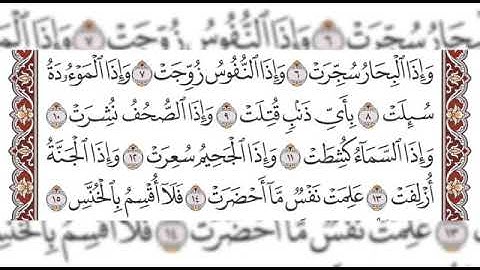 وَإِذَا ٱلْبِحَارُ سُجِّرَتْ ٦ وَإِذَا ٱلنُّفُوسُ زُوِّجَتْ ٧ وَإِذَا ٱلْمَوْءُۥدَةُ
سُئِلَتْ ٨ بِأَىِّ ذَنۢبٍ قُتِلَتْ ٩ وَإِذَا ٱلصُّحُفُ نُشِرَتْ ١٠
وَإِذَا ٱلسَّمَآءُ كُشِطَتْ ١١ وَإِذَا ٱلْجَحِيمُ سُعِّرَتْ ١٢ وَإِذَا ٱلْجَنَّةُ
أُزْلِفَتْ ١٣ عَلِمَتْ نَفْسٌ مَّآ أَحْضَرَتْ ١٤ فَلَآ أُقْسِمُ بِٱلْخُنَّسِ ١٥